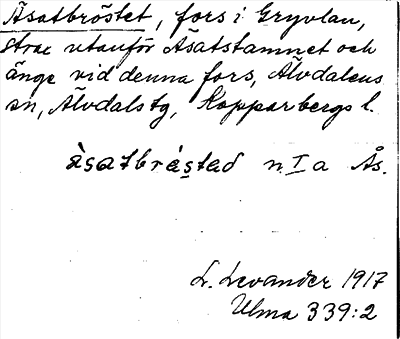 Åsatbröstet, fors i Gryvlan,
strax utanför Åsatstamnet och
änge vid denna fors, Älvdalens
sn, Älvdals tg, Kopparbergs l.
àsatbrǻstad n. I a Ås.
L. Levander 1917
Ulma 339:2